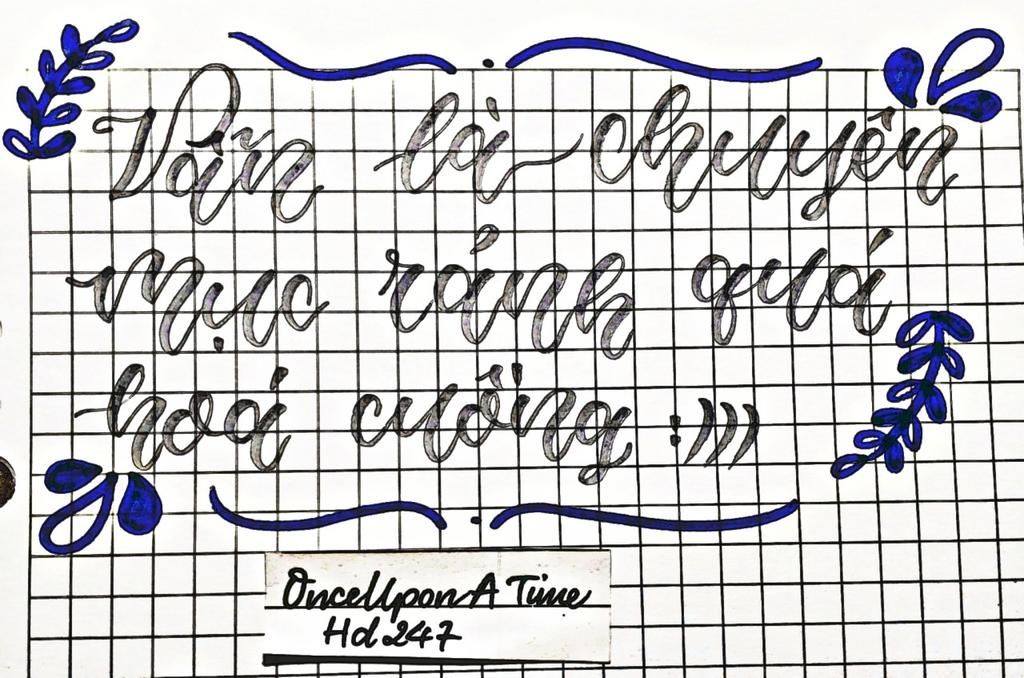 Vẫn là chuyên
mục rảnh quá
hoá cuồng :)))
OnceUponA Time
Hd 247